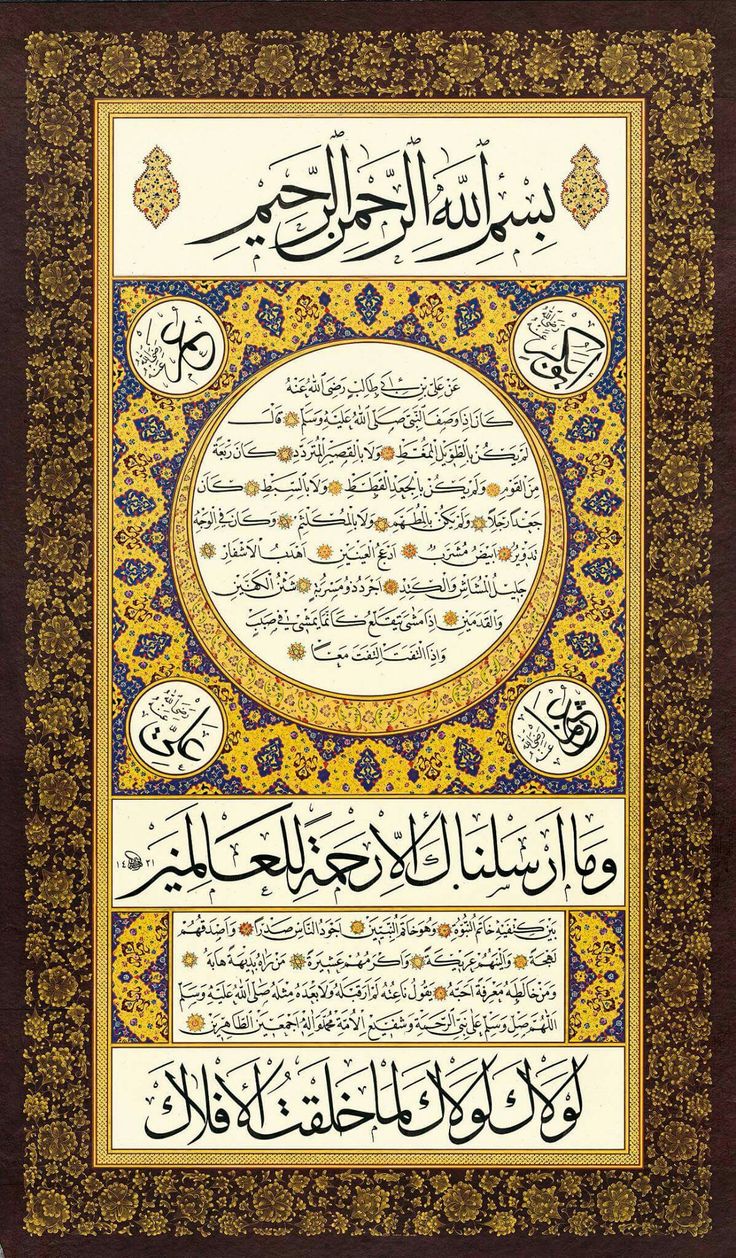 بِسْمِ اللهِ الرَّحْمٰنِ الرَّحِيمِ
أبو بكر رضي الله عنه
عمر رضي الله عنه
عَنْ عَلِيِّ بْنِ أَبِي طَالِبٍ رَضِيَ اللهُ عَنْهُ
كَانَ إِذَا وَصَفَ النَّبِيَّ صَلَّى اللهُ عَلَيْهِ وَسَلَّمَ قَالَ
لَمْ يَكُنْ بِالطَّوِيلِ الْمُمَّغِطِ وَلَا بِالْقَصِيرِ الْمُتَرَدِّدِ كَانَ رَبْعَةً
مِنَ الْقَوْمِ وَلَمْ يَكُنْ بِالْجَعْدِ الْقَطَطِ وَلَا بِالسَّبْطِ كَانَ
جَعْدًا رَجِلًا وَلَمْ يَكُنْ بِالْمُطَهَّمِ وَلَا بِالْمُكَلْثَمِ وَكَانَ فِي الْوَجْهِ
تَدْوِيرٌ أَبْيَضُ مُشْرَبٌ أَدْعَجُ الْعَيْنَيْنِ أَهْدَبُ الْأَشْفَارِ
جَلِيلُ الْمُشَاشِ وَالْكَتَدِ أَجْرَدُ ذُو مَسْرُبَةٍ شَثْنُ الْكَفَّيْنِ
وَالْقَدَمَيْنِ إِذَا مَشَى يَتَقَلَّعُ كَأَنَّمَا يَمْشِي فِي صَبَبٍ
وَإِذَا الْتَفَتَ الْتَفَتَ مَعًا
عثمان رضي الله عنه
علي رضي الله عنه
وَمَا أَرْسَلْنَاكَ إِلَّا رَحْمَةً لِلْعَالَمِينَ
١٤٢١
بَيْنَ كَتِفَيْهِ خَاتَمُ النُّبُوَّةِ وَهُوَ خَاتَمُ النَّبِيِّينَ أَجْوَدُ النَّاسِ صَدْرًا وَأَصْدَقُهُمْ
لَهْجَةً وَأَلْيَنُهُمْ عَرِيكَةً وَأَكْرَمُهُمْ عَشِيرَةً مَنْ رَآهُ بَدِيهَةً هَابَهُ
وَمَنْ خَالَطَهُ مَعْرِفَةً أَحَبَّهُ يَقُولُ نَاعِتُهُ لَمْ أَرَ قَبْلَهُ وَلَا بَعْدَهُ مِثْلَهُ صَلَّى اللهُ عَلَيْهِ وَسَلَّمَ
اللَّهُمَّ صَلِّ وَسَلِّمْ عَلَى نَبِيِّ الرَّحْمَةِ وَشَفِيعِ الْأُمَّةِ مُحَمَّدٍ وَآلِهِ أَجْمَعِينَ الطَّاهِرِينَ
لَوْلَاكَ لَوْلَاكَ لَمَا خَلَقْتُ الْأَفْلَاكَ